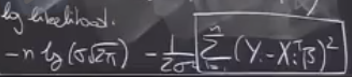 log likelihood.
-n log (σ√2π) - 1/2σ² Σⁿᵢ₌₁ (Yᵢ - Xᵢᵀβ)²